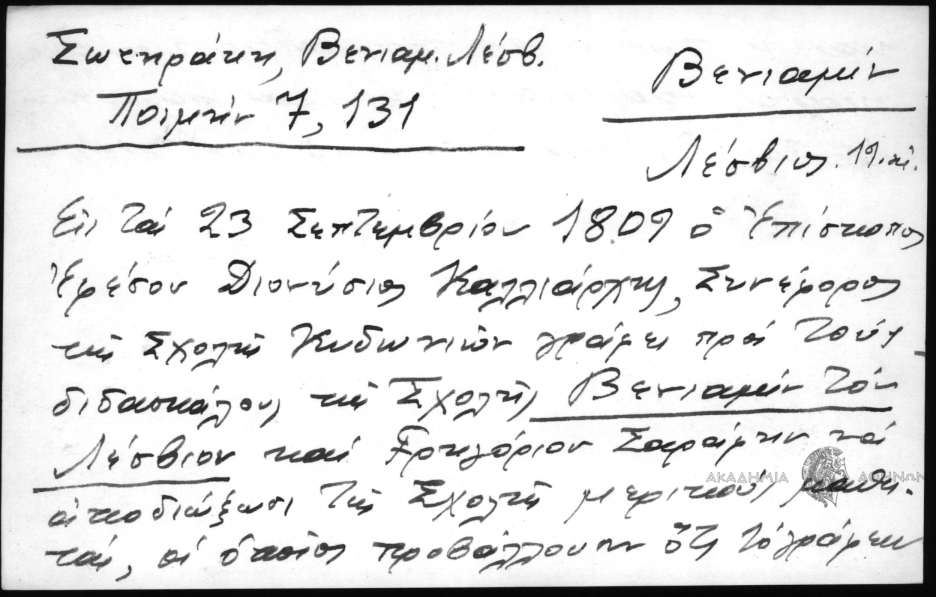 Σωτηράκη, Βενιαμ. Λέσβ.
Ποιμήν 7, 131
Βενιαμίν
Λέσβιος
Εἰς τάς 23 Σεπτεμβρίου 1809 ὁ Ἐπίσκοπος
Ἐφέσου Διονύσιος Καλλιάρχης, Συνέφορος
τῆς Σχολῆς Κυδωνιῶν γράφει πρός τούς
διδασκάλους τῆς Σχολῆς Βενιαμίν τόν
Λέσβιον καί Γρηγόριον Σαράφην νά
ἀποδιώξωσι τῆς Σχολῆς μερικούς μαθη-
τάς, οἱ ὁποῖοι προβάλλουν ὅτι
ΑΚΑΔΗΜΙΑ ΑΘΗΝΩΝ